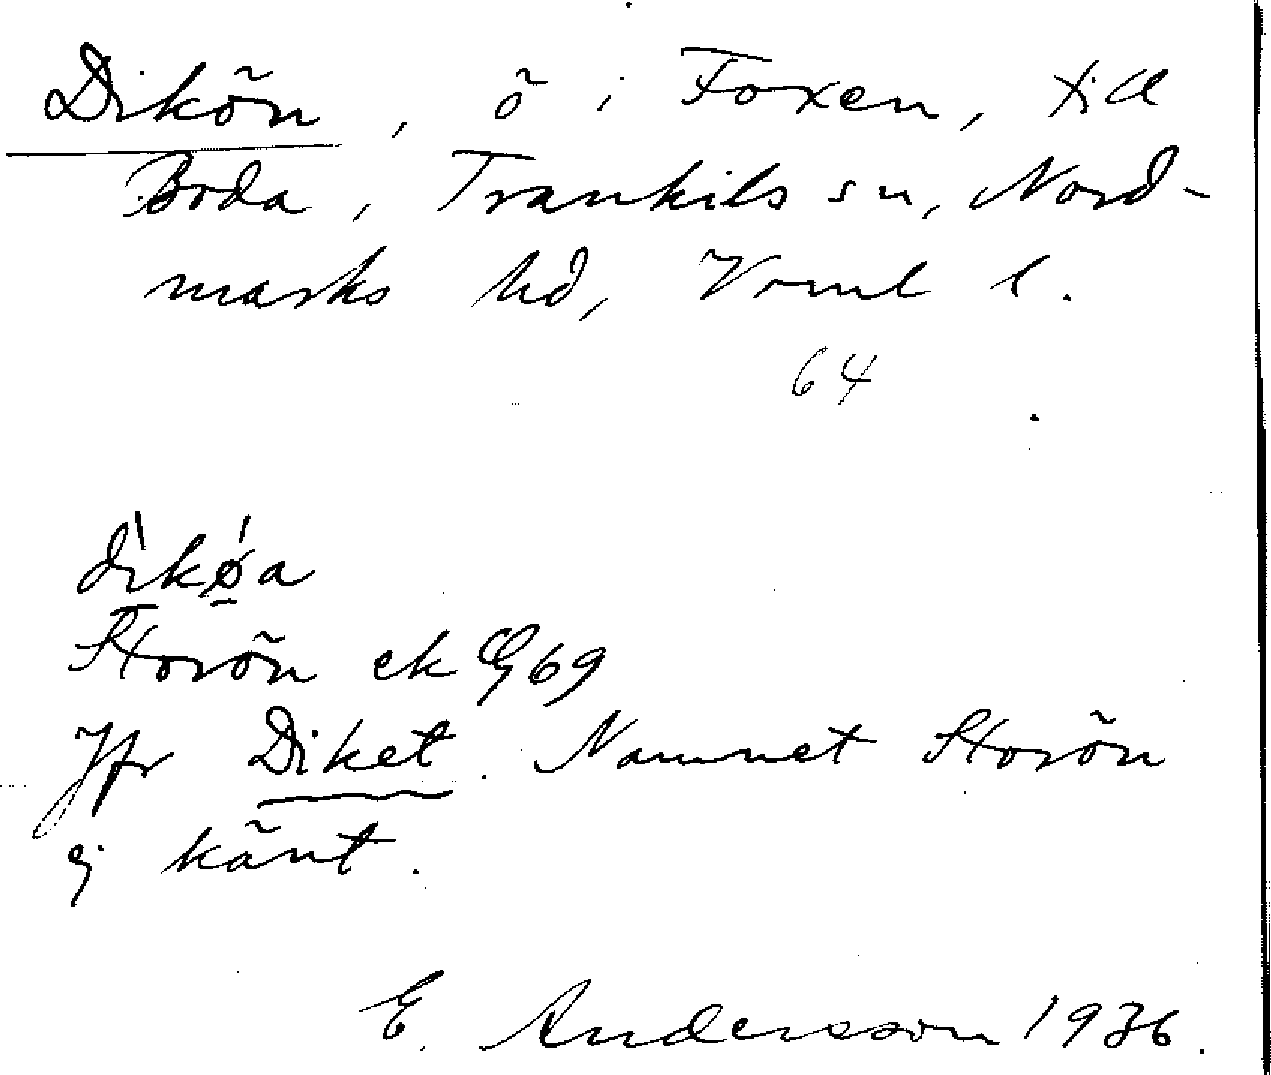 Dikön, ö i Foxen, till
Boda, Trankils sn, Nord-
marks hd, Vrml l.
64
dìkǿa
Storön ek G69
Jfr Diket. Namnet Storön
ej känt.
E. Andersson 1936.